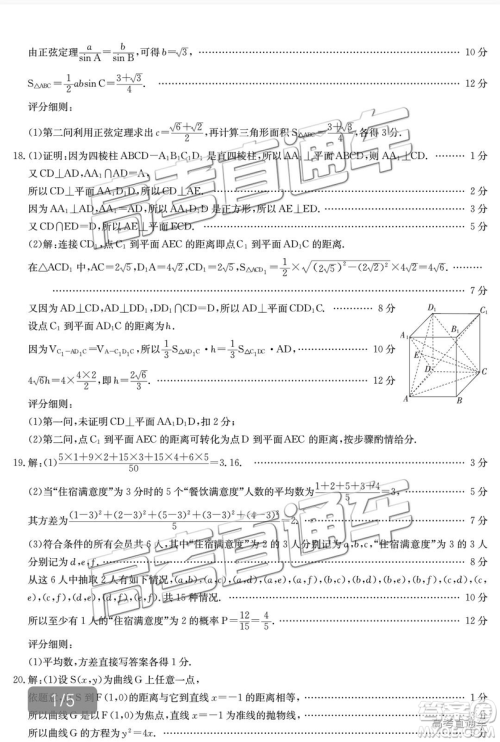 由正弦定理a/sin A=b/sin B,可得b=√3, 10 分
S△ABC=1/2 absin C=(3+√3)/4. 12 分
评分细则:
(1)第二问利用正弦定理求出c=(√6+√2)/2,再计算三角形面积S△ABC=(3+√3)/4,各得3分.
18.(1)证明:因为四棱柱ABCD-A1B1C1D1是直四棱柱,所以AA1⊥平面ABCD,则AA1⊥CD. 1 分
又CD⊥AD,AA1∩AD=A,
所以CD⊥平面AA1D1D,所以CD⊥AE. 2 分
因为AA1⊥AD,AA1=AD,所以AA1D1D是正方形,所以AE⊥ED. 3 分
又CD∩ED=D,所以AE⊥平面ECD. 5 分
(2)解:连接CD1,点C1到平面AEC的距离即点C1到平面AD1C的距离.
在△ACD1中,AC=2√5,D1A=4√2,CD1=2√5,S△ACD1=1/2×√((2√5)²-(2√2)²)×4√2=4√6.
7 分
又因为AD⊥CD,AD⊥DD1,DD1∩CD=D,所以AD⊥平面CDD1C1. 8 分
设点C1到平面AD1C的距离为h.
因为VC1-AD1C=VA-C1D1C,所以1/3 S△AD1C·h=1/3 S△C1D1C·AD, 10 分
4√6h=4×(4×2)/2,即h=2√6/3. 12 分
D1
C1
A1
B1
E
D
C
A
B
评分细则:
(1)第一问,未证明CD⊥平面AA1D1D,扣2分;
(2)第二问,点C1到平面AEC的距离可转化为点D到平面AEC的距离,按步骤酌情给分.
19.解:(1)(5×1+9×2+15×3+15×4+6×5)/50=3.16. 3 分
(2)当“住宿满意度”为3分时的5个“餐饮满意度”人数的平均数为(1+2+5+3+4)/5=3, 5 分
其方差为((1-3)²+(2-3)²+(5-3)²+(3-3)²+(4-3)²)/5=2. 7 分
(3)符合条件的所有会员共6人,其中“住宿满意度”为2的3人分别记为a,b,c,“住宿满意度”为3的3人
分别记为d,e,f. 8 分
从这6人中抽取2人有如下情况,(a,b),(a,c),(a,d),(a,e),(a,f),(b,c),(b,d),(b,e),(b,f),(c,d),(c,
e),(c,f),(d,e),(d,f),(e,f).共15种情况. 10 分
所以至少有1人的“住宿满意度”为2的概率P=12/15=4/5. 12 分
评分细则:
(1)平均数、方差直接写答案各得1分.
20.解:(1)设S(x,y)为曲线Γ上任意一点,
依题意,点S到F(1,0)的距离与它到直线
所以曲线Γ是以F(1,0)为焦点,直线x=-1为准线的抛物线,
所以曲线Γ的方程为y²=4x.
1/5
高考直通车
高考直通车
高考直通车